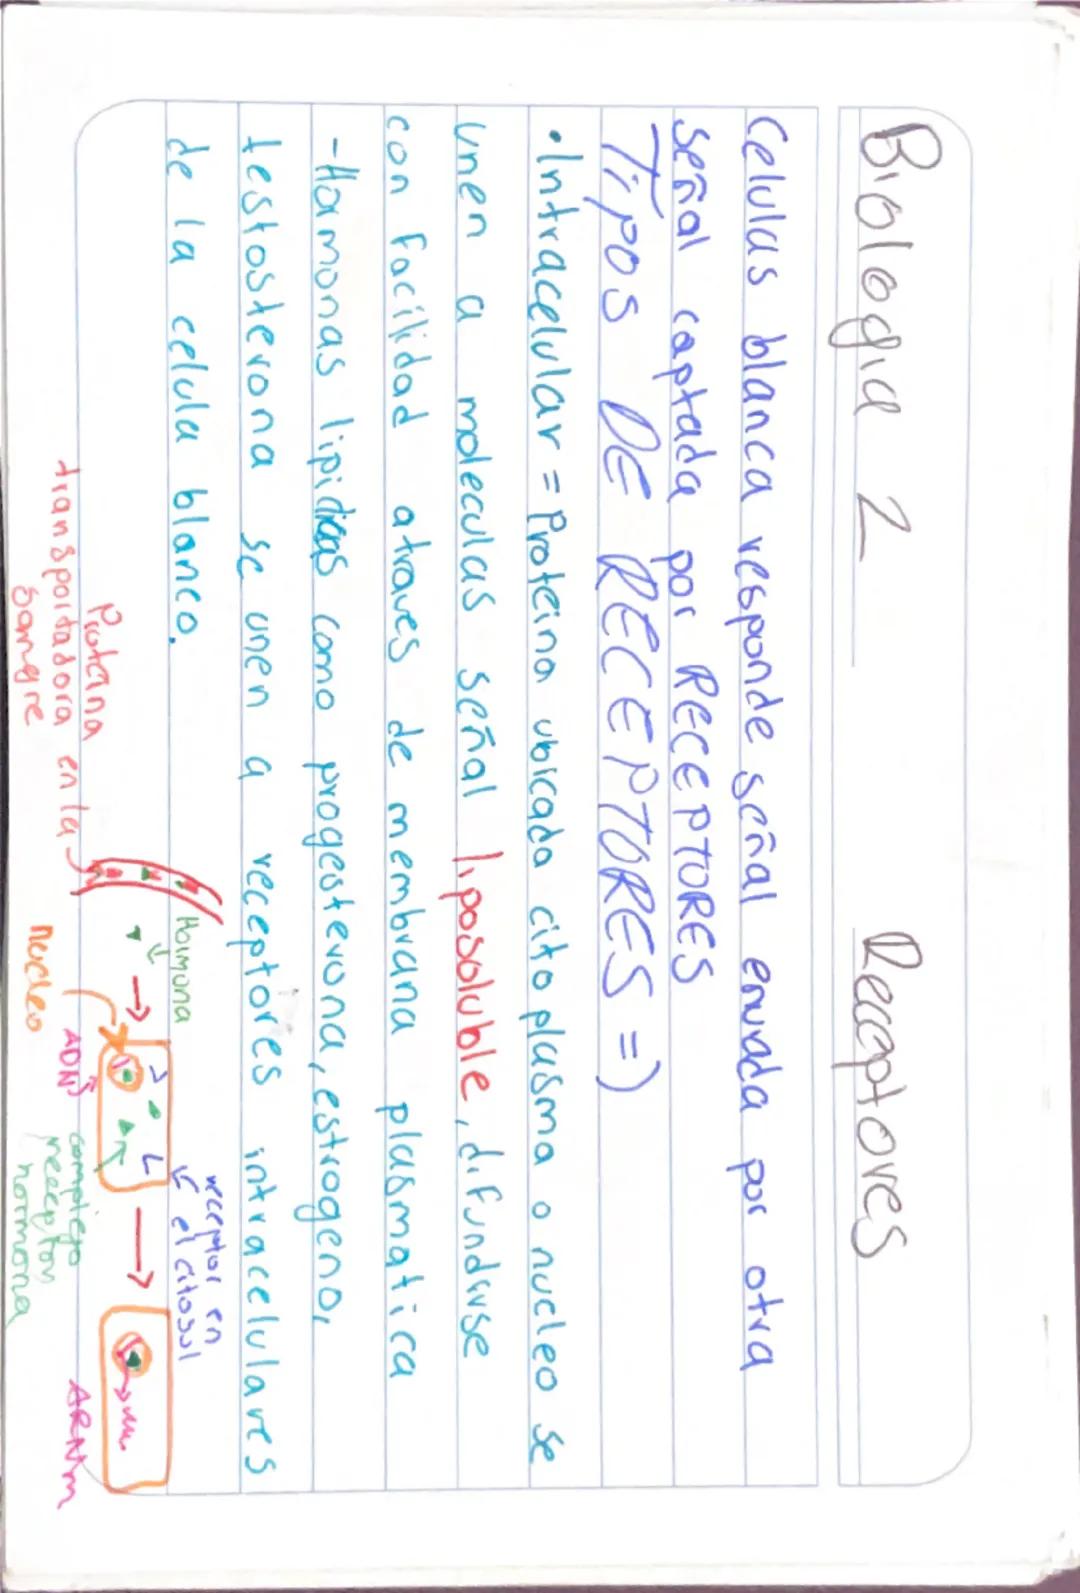 Biologia 2 Receptores
Celulas blanca responde señal enviada por otra
señal captada por RECEPTORES
TIPOS DE RECEPTORES =)
•Intracelular = Proteina ubicada citoplasma o nucleo se
unen a moleculas señal liposoluble, difundirse
con facilidad atraves de membrana plasmatica
-Hormonas lipidicas como progesterona, estrogeno,
testosterona se unen a receptores intracelulares
de la celula blanco.
Proteina
transportadora en la
sangre
Hormona
nucleo
ADN
receptor en
el citosol
complejo
receptor
hormona
ARNm